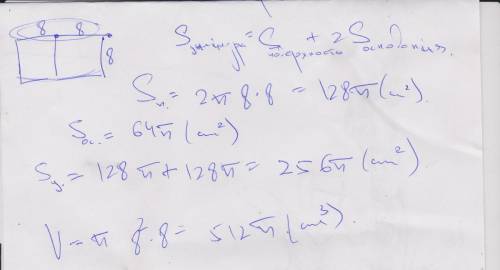 8 8
8
S цилиндра = S поверхность + 2 S основания.
S п. = 2π 8·8 = 128π (см²).
S ос. = 64π (см²)
S ц. = 128π + 128π = 256π (см²).
V = π 8²·8 = 512π (см³).